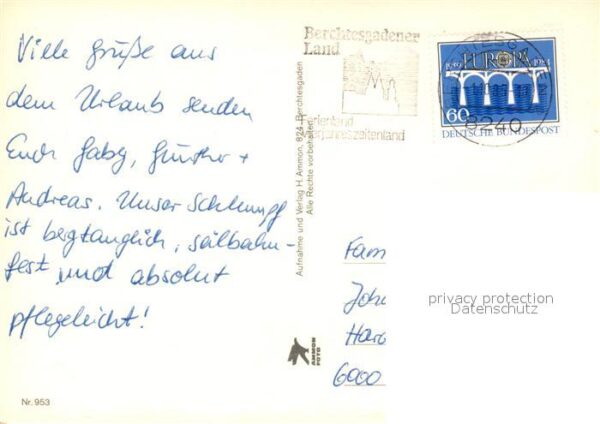 Viele Grüße aus
dem Urlaub senden
Euch Gaby, Günther +
Andreas. Unser Schlumpf
ist bergtauglich, seilbahn-
fest und absolut
pflegeleicht!
Nr. 953
Aufnahme und Verlag H. Ammon, 824 Berchtesgaden
Alle Rechte vorbehalten
AMMON
FOTO
Berchtesgadener
Land
erienland
erjahreszeitenland
8240
1959 EUROPA 1984
60
DEUTSCHE BUNDESPOST
Fam
Joh
Har
6000
privacy protection
Datenschutz